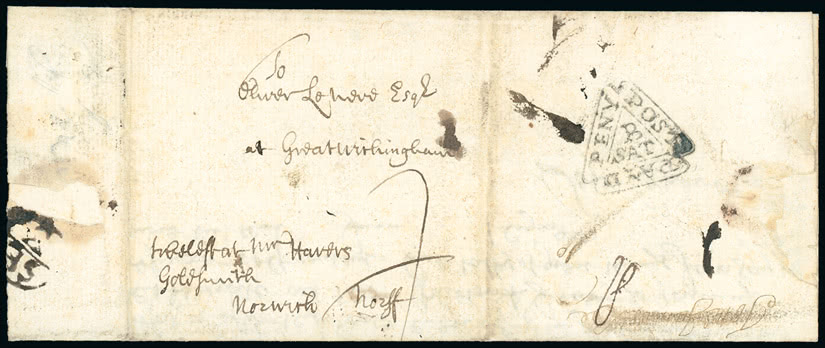 To
Oliver Le Neve Esqr
at Great Witchingham
to be left at Mr Havers
Goldsmith
Norwich Norff
PENY POST PAYD
SAT